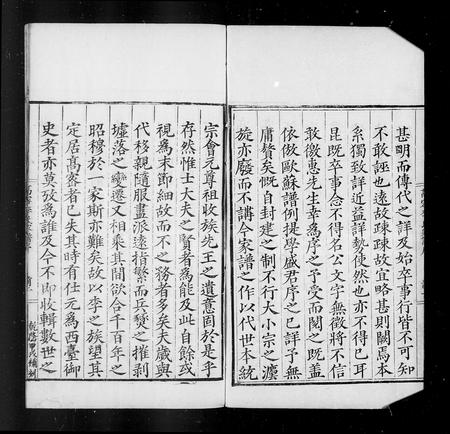 甚明而傳代之詳及始卒事行皆不可知
不敢誣也遠故疎疎故宜略甚則闕焉本
系獨致詳近益詳勢使然也亦不得已耳
昆既卒事念不得名公文字無徵將不信
敢徼惠先生幸為序之予受而閱之既蓋
依倣歐蘇譜例提學盛君序之已詳予無
庸贅矣慨自封建之制不行大小宗之瀆
旋亦廢而不講今家譜之作以代世本統
宗會元尊祖收族先王之遺意固於是乎
存然惟士大夫之賢者為能及此自餘或
視為末節細故而不之務者多矣夫歲與
代移親隨服盡派遠指繁而兵燹之摧剥
墟落之變遷又相乘其間欲合千百年之
昭穆於一家斯亦難矣故以李之族望其
定居高密者已失其時有仕元為西臺御
史者亦莫攷為誰及今不即收輯數世之